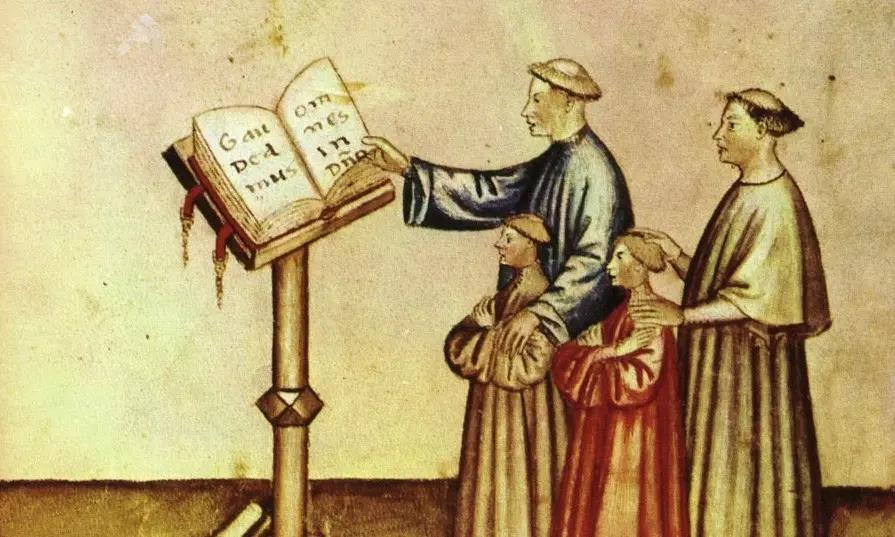 Gau
Ded
mus
om
nes
in
dño